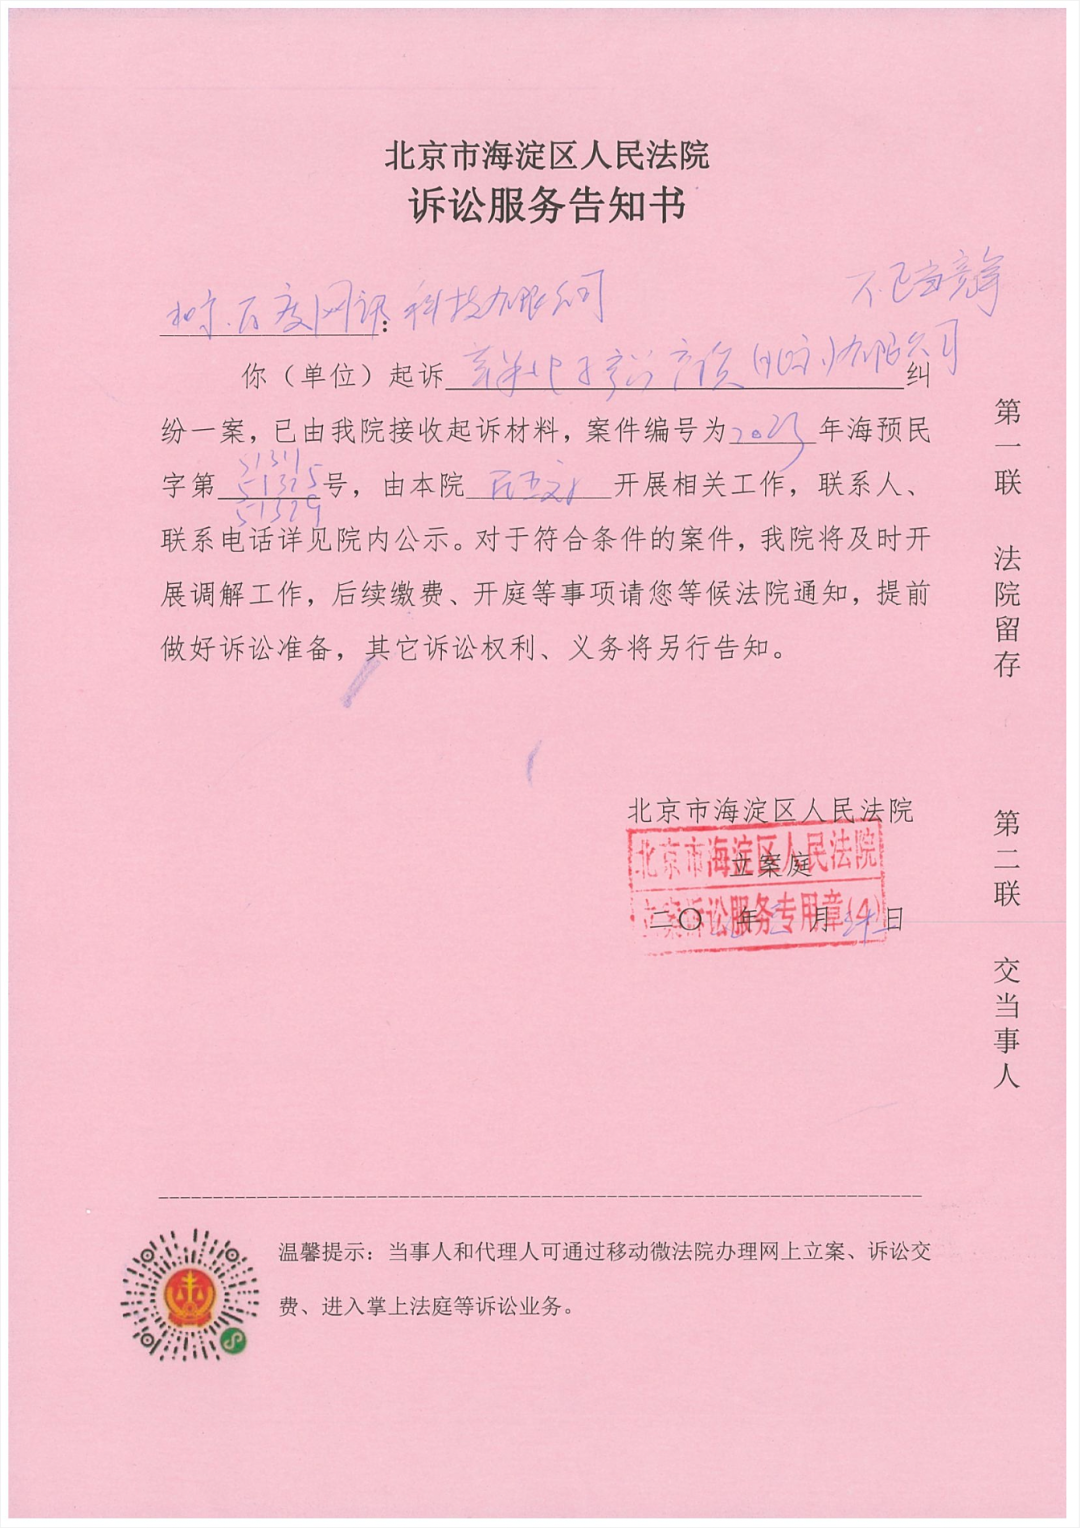 北京市海淀区人民法院
诉讼服务告知书
北京百度网讯科技有限公司：
不正当竞争
你（单位）起诉 有限公司 纠
纷一案，已由我院接收起诉材料，案件编号为2023年海预民
51311
字第51325号，由本院 开展相关工作，联系人、
51329
联系电话详见院内公示。对于符合条件的案件，我院将及时开
展调解工作，后续缴费、开庭等事项请您等候法院通知，提前
做好诉讼准备，其它诉讼权利、义务将另行告知。
北京市海淀区人民法院
立案庭
二〇 年 月 日
北京市海淀区人民法院
立案诉讼服务专用章(4)
第一联 法院留存
第二联 交当事人
温馨提示：当事人和代理人可通过移动微法院办理网上立案、诉讼交
费、进入掌上法庭等诉讼业务。